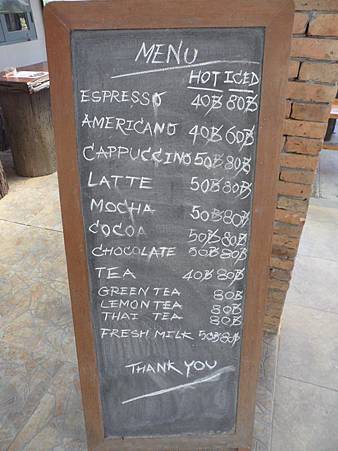 MENU
HOT ICED
ESPRESSO 40฿ 80฿
AMERICANO 40฿ 60฿
CAPPUCCINO 50฿ 80฿
LATTE 50฿ 80฿
MOCHA 50฿ 80฿
COCOA 50฿ 80฿
CHOCOLATE 50฿ 80฿
TEA 40฿ 80฿
GREEN TEA 80฿
LEMON TEA 80฿
THAI TEA 80฿
FRESH MILK 50฿ 80฿
THANK YOU